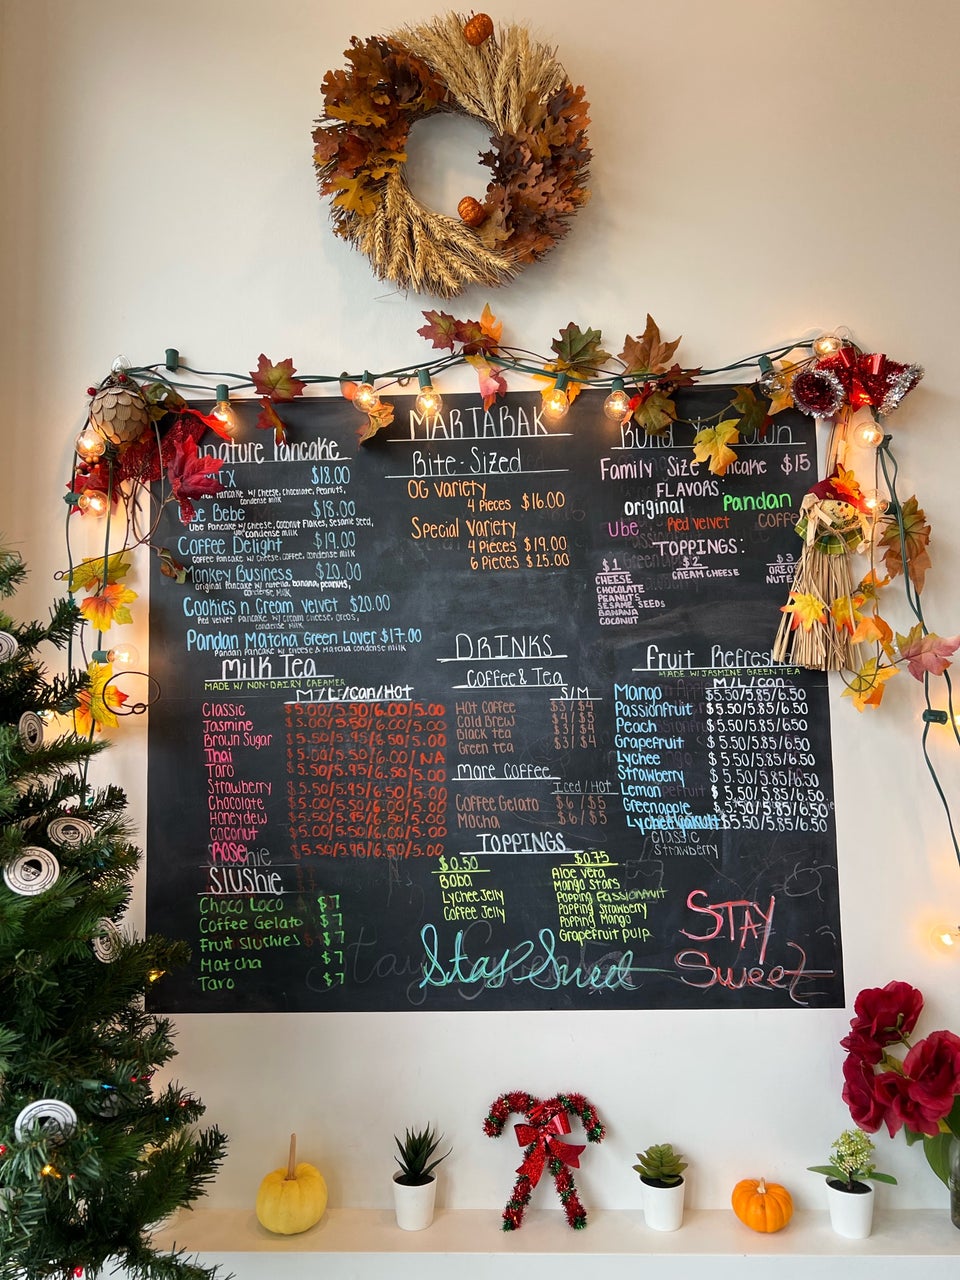 MARTABAK
Signature Pancake
$18.00
Pancake w/ cheese, chocolate, peanuts,
condense milk
Ube Bebe $18.00
Ube Pancake w/ cheese, coconut flakes, sesame seed,
condense milk
Coffee Delight $19.00
Coffee Pancake w/ cheese, coffee, condense milk
Monkey Business $20.00
original Pancake w/ nutella, banana, peanuts,
condense milk
Cookies n Cream Velvet $20.00
Red Velvet Pancake w/ cream cheese, oreos,
condense milk
Pandan Matcha Green Lover $17.00
Pandan Pancake w/ cheese & matcha condense milk
Bite-Sized
OG Variety
4 Pieces $16.00
Special Variety
4 Pieces $19.00
6 Pieces $25.00
Build Your Own
Family Size Pancake $15
FLAVORS:
original Pandan
Ube Red Velvet Coffee
TOPPINGS:
$1
CHEESE
CHOCOLATE
PEANUTS
SESAME SEEDS
BANANA
COCONUT
$2
CREAM CHEESE
$3
OREOS
NUTELLA
DRINKS
Milk Tea
MADE W/ NON-DAIRY CREAMER
M/L/can/Hot
Classic $5.00/5.50/6.00/5.00
Jasmine
Brown Sugar
Thai
Taro
Strawberry
Chocolate
Honeydew
Coconut
Rose
Slushie
Choco Loco $7
Coffee Gelato $7
Fruit Slushies $7
Matcha $7
Taro $7
Coffee & Tea
S/M
Hot Coffee $3/$4
Cold Brew $4/$5
Black tea $3/$4
Green tea $3/$4
More Coffee
Iced/Hot
Coffee Gelato $6/$5
Mocha $6/$5
TOPPINGS
$0.50
Boba
Lychee Jelly
Coffee Jelly
$0.75
Aloe vera
Mango Stars
Popping Passionfruit
Popping Strawberry
Popping Mango
Grapefruit pulp
Fruit Refresher
MADE W/ JASMINE GREEN TEA
M/L/can
Mango $5.50/5.85/6.50
Passionfruit $5.50/5.85/6.50
Peach $5.50/5.85/6.50
Grapefruit $5.50/5.85/6.50
Lychee $5.50/5.85/6.50
Strawberry $5.50/5.85/6.50
Lemon $5.50/5.85/6.50
Greenapple $5.50/5.85/6.50
$5.50/5.85/6.50
Classic
Strawberry
Stay Sweet
STAY
Sweet